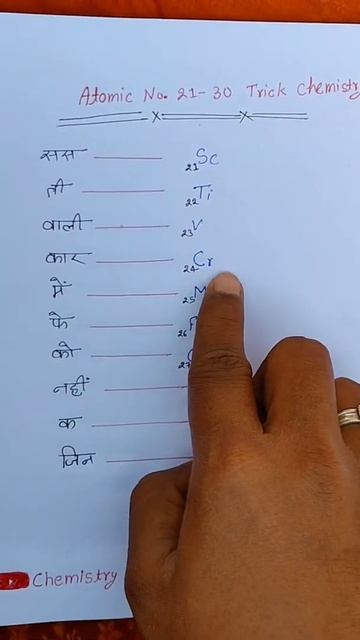 Atomic No. 21-30 Trick Chemistry
सस 21Sc
ती 22Ti
वाली 23V
कार 24Cr
में 25M
फे 26
को 27
नहीं
क
जिन
Chemistry